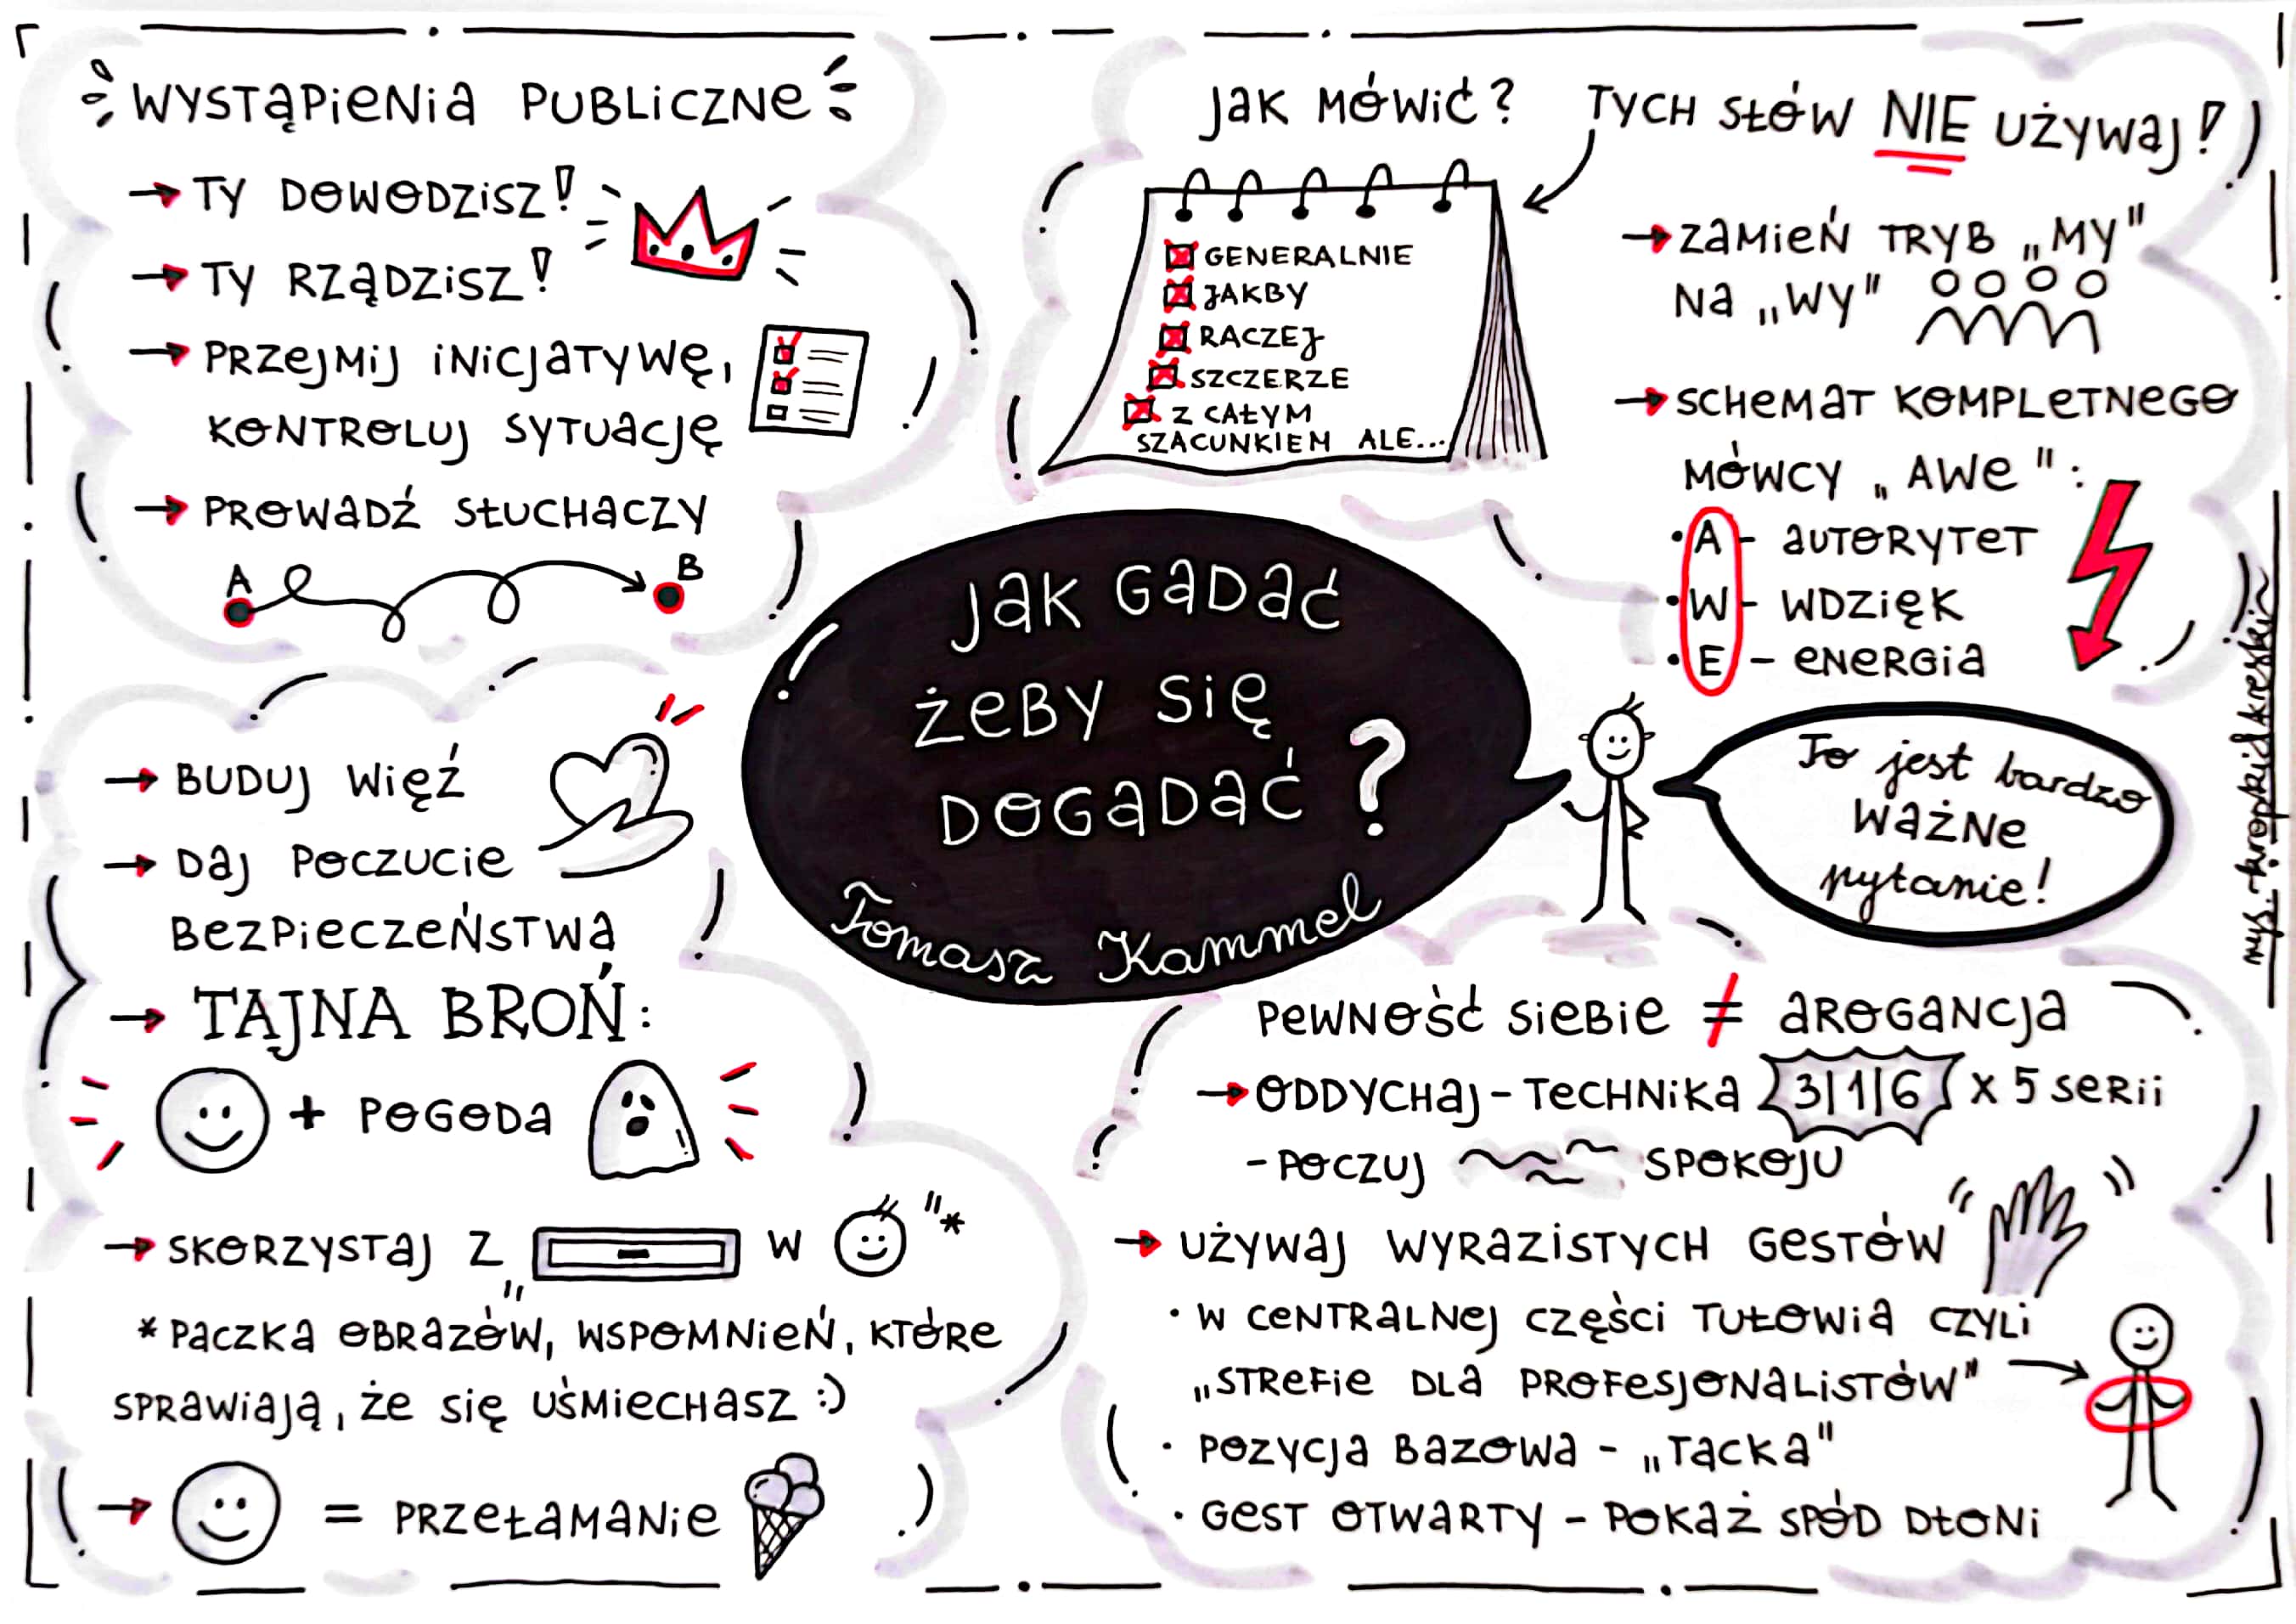 WYSTĄPIENIA PUBLICZNE
→ TY DOWODZISZ!
→ TY RZĄDZISZ!
→ PRZEJMIJ INICJATYWĘ,
KONTROLUJ SYTUACJĘ
→ PROWADŹ SŁUCHACZY
A B
JAK MÓWIĆ?
TYCH SŁÓW NIE UŻYWAJ!
GENERALNIE
JAKBY
RACZEJ
SZCZERZE
Z CAŁYM
SZACUNKIEM ALE...
→ ZAMIEŃ TRYB „MY"
NA „WY"
→ SCHEMAT KOMPLETNEGO
MÓWCY „AWE":
• A - AUTORYTET
• W - WDZIĘK
• E - ENERGIA
JAK GADAĆ
ŻEBY SIĘ
DOGADAĆ?
Tomasz Kammel
To jest bardzo
WAŻNE
pytanie!
→ BUDUJ WIĘŹ
→ DAJ POCZUCIE
BEZPIECZEŃSTWA
→ TAJNA BROŃ:
+ POGODA
→ SKORZYSTAJ Z „ W "*
* PACZKA OBRAZÓW, WSPOMNIEŃ, KTÓRE
SPRAWIAJĄ, ŻE SIĘ UŚMIECHASZ :)
→ = PRZEŁAMANIE
PEWNOŚĆ SIEBIE ≠ AROGANCJA
→ ODDYCHAJ - TECHNIKA 3|1|6 X 5 SERII
- POCZUJ SPOKOJU
→ UŻYWAJ WYRAZISTYCH GESTÓW
• W CENTRALNEJ CZĘŚCI TUŁOWIA CZYLI
„STREFIE DLA PROFESJONALISTÓW" →
• POZYCJA BAZOWA - „TACKA"
• GEST OTWARTY - POKAŻ SPÓD DŁONI
rys. kropkidkreski